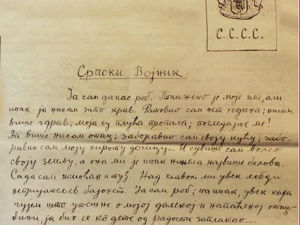 С.С.С.С.
Српски Војник.
Ја сам данас роб. Понижено је моје име, али
ипак ја нисам зато крив. Ратовао сам пет година; нисам
више здрав; моја је снага пропала; погледајте ме!
Ја више нисам отац; заборавио сам своју кућу; забо-
равио сам моју сироту дечицу... И сувише сам волео
своју земљу, а она ми је ипак нанела највише болова.
Сада сам жалован и туђ. Над главом ми увек лебди
непријатељев бајонет. Ја сам роб; па ипак, увек када
чујем што утешно о мојој далекој и напаћеној отаџ-
бини, ја бих се ко дете од радости заплакао...